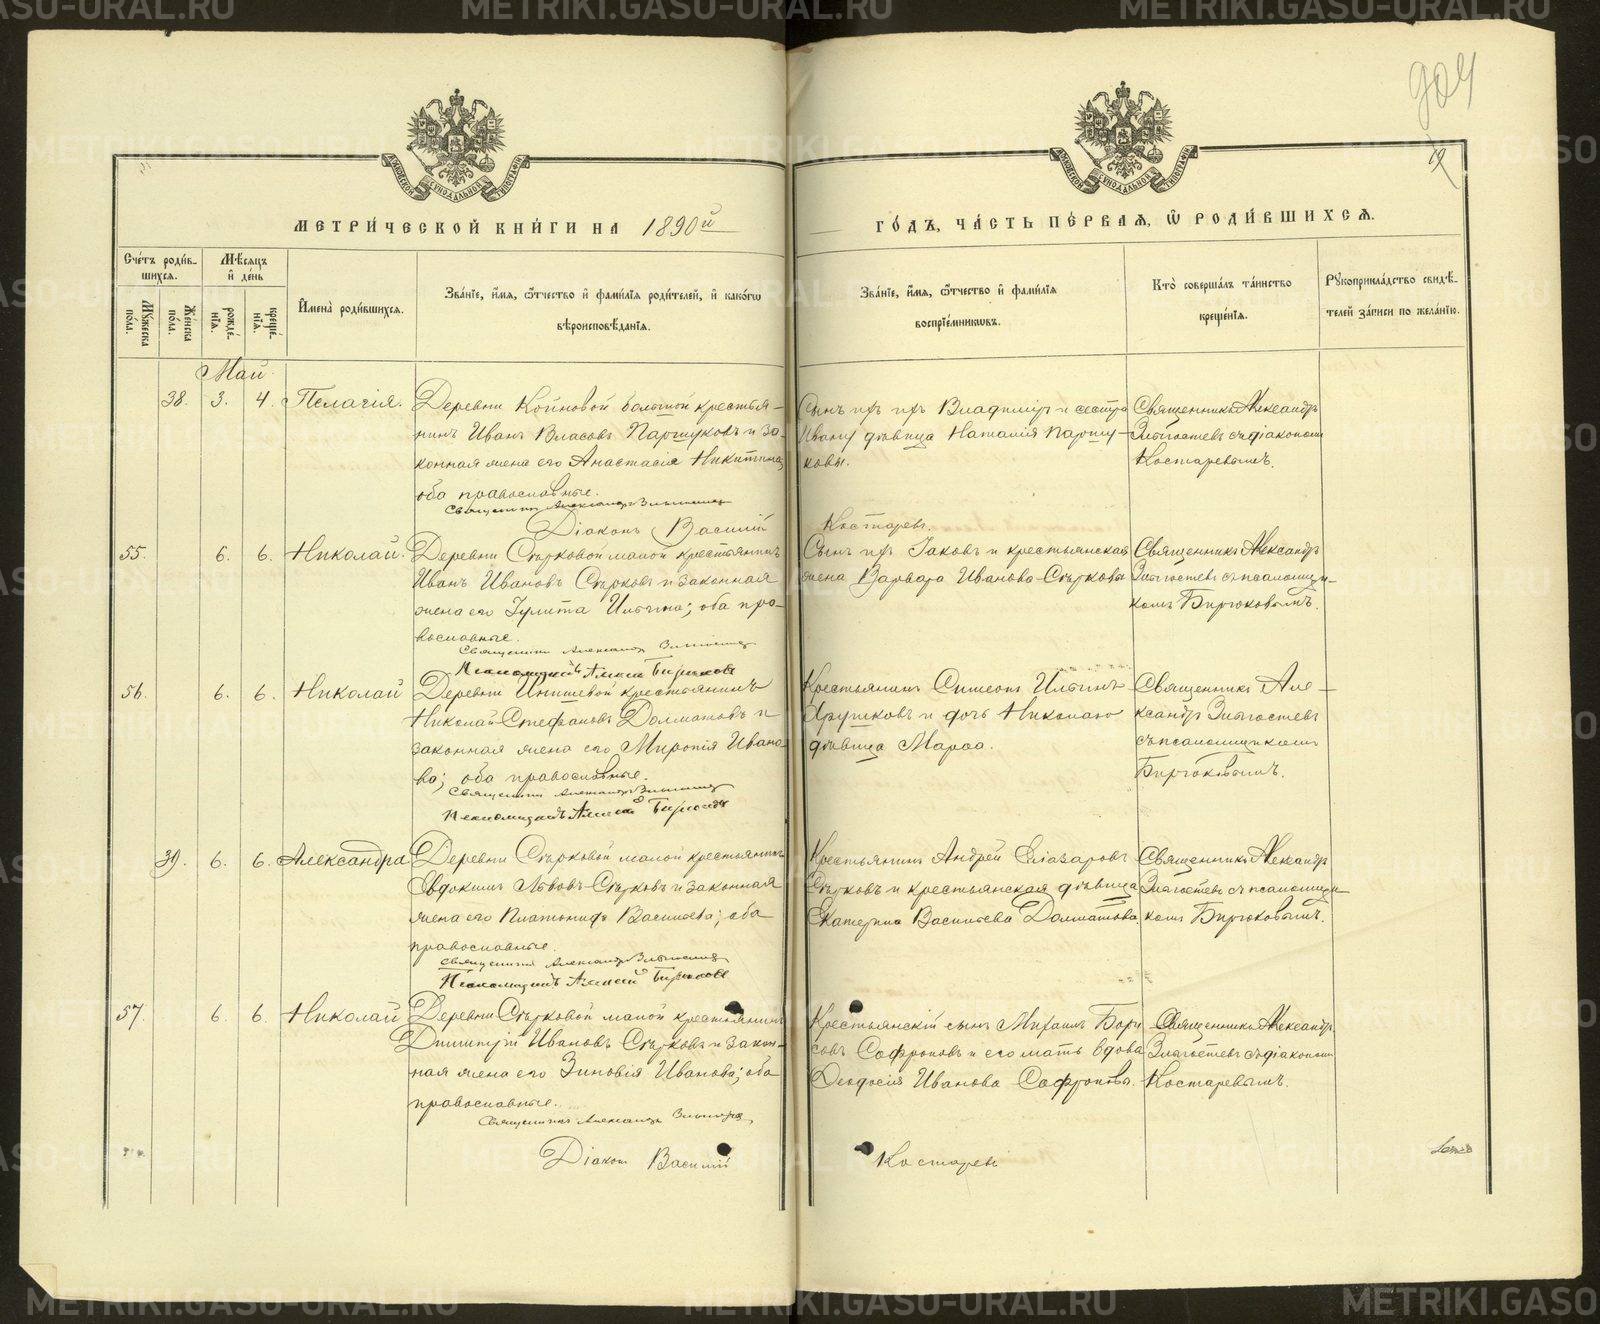 904
12
МЕТРИ́ЧЕСКОЙ КНИ́ГИ НА 1890й
ГО́ДЪ, ЧА́СТЬ ПЕ́РВАЯ, Ѿ РОДИ́ВШИХСЯ.
Сче́тъ роди́вшихся.
Му́жеска по́ла.
Же́нска по́ла.
Мѣ́сяцъ и де́нь
рожде́нїя.
креще́нїя.
И҆мена̀ роди́вшихся.
Зва́нїе, и҆́мя, ѻ҆́тчество и҆ фами́лїя роди́телей, и҆ како́гѡ
вѣроисповѣ́данїя.
Зва́нїе, и҆́мя, ѻ҆́тчество и҆ фами́лїя
воспрїе́мникѡвъ.
Кто̀ соверша́лъ та́инство
креще́нїя.
Рꙋкоприкла́дство свидѣ́-
телей за́писи по жела́нїю.
Май
38. 3. 4. Пелагія.
Деревни Койновой большой крестья-
нинъ Иванъ Власовъ Паршуковъ и за-
конная жена его Анастасія Никитина
оба православные.
Священникъ Александръ
Діаконъ Василій Костаревъ.
Сынъ Владиміръ и сестра
Ивану дѣвица Наталія Паршу-
ковы.
Священникъ Александръ
съ діакономъ
Костаревымъ.
55. 6. 6. Николай.
Деревни Сѣрковой малой крестьянинъ
Иванъ Ивановъ Сѣрковъ и законная
жена его Іулита Ильина; оба пра-
вославные.
Священникъ Александръ
Псаломщикъ Алексій Бирюковъ
Сынъ Іаковъ и крестьянская
жена Варвара Иванова Сѣркова
Священникъ Александръ
съ псаломщи-
комъ Бирюковымъ.
56. 6. 6. Николай
Деревни крестьянинъ
Николай Стефановъ Долматовъ и
законная жена его Миропія Ивано-
ва; оба православные.
Священникъ Александръ
Псаломщикъ Алексій Бирюковъ
Крестьянинъ Симеонъ Ильинъ
и дочь Николаю
дѣвица Марѳа.
Священникъ Але-
ксандръ
съ псаломщикомъ
Бирюковымъ.
39. 6. 6. Александра
Деревни Сѣрковой малой крестьянинъ
Евдокимъ Львовъ Сѣрковъ и законная
жена его Платонида Васильева; оба
православные.
Священникъ Александръ
Псаломщикъ Алексій Бирюковъ
Крестьянинъ Андрей Елазаровъ
Сѣрковъ и крестьянская дѣвица
Екатерина Васильева Долматова.
Священникъ Александръ
съ псаломщи-
комъ Бирюковымъ.
57. 6. 6. Николай
Деревни Сѣрковой малой крестьянинъ
Димитрій Ивановъ Сѣрковъ и закон-
ная жена его Зиновія Иванова; оба
православные.
Священникъ Александръ
Діаконъ Василій Костаревъ
Крестьянскій сынъ Михаилъ Бори-
совъ Сафроновъ и его мать вдова
Ѳеодосія Иванова Сафронова.
Священникъ Александръ
съ діакономъ
Костаревымъ.
METRIKI.GASO-URAL.RU